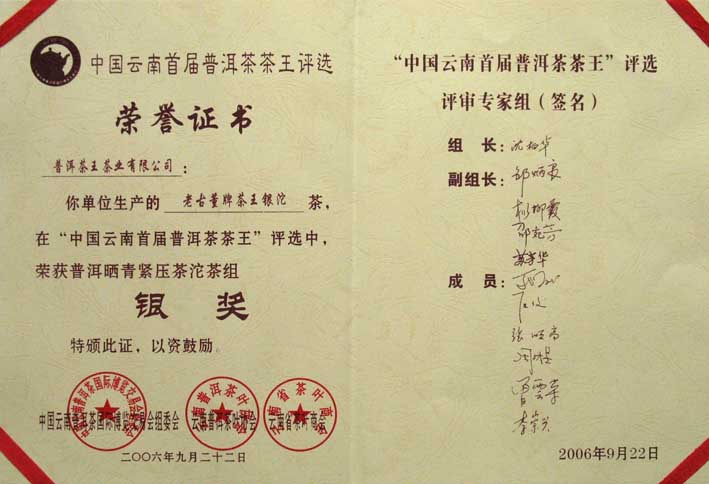 中国云南首届普洱茶茶王评选
荣誉证书
普洱茶王茶业有限公司：
你单位生产的 老古董牌茶王银沱 茶，
在“中国云南首届普洱茶茶王”评选中，
荣获普洱晒青紧压茶沱茶组
银奖
特颁此证，以资鼓励。
中国云南普洱茶国际博览交易会组委会 云南普洱茶叶协会 云南省茶叶商会
二〇〇六年九月二十二日
“中国云南首届普洱茶茶王”评选
评审专家组（签名）
组 长：
副组长：
成 员：
2006年9月22日